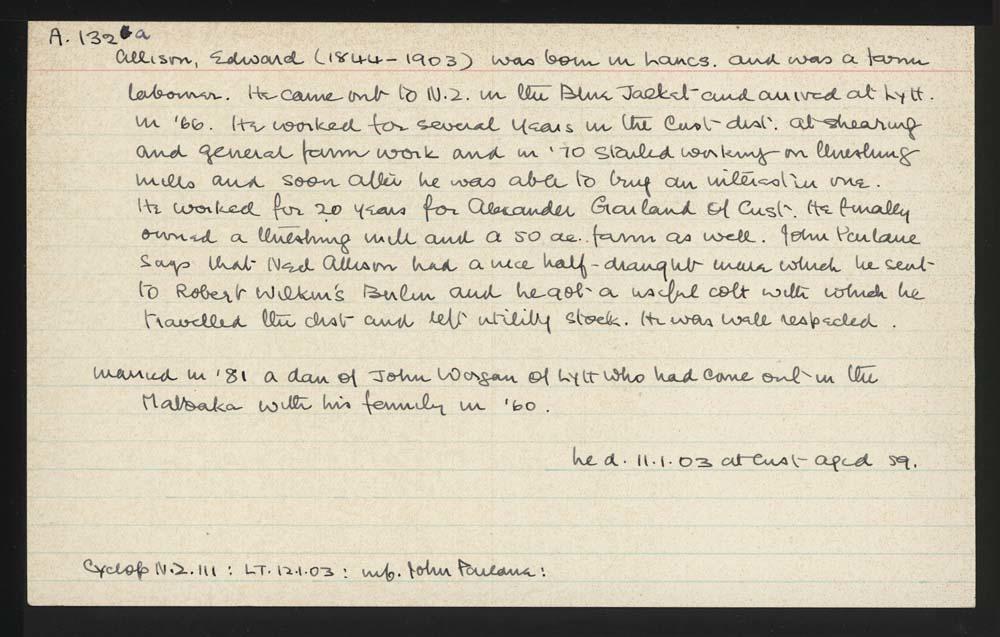 A. 132 a
Allison, Edward (1844-1903) was born in Lancs. and was a farm
labourer. He came out to N.Z. in the Blue Jacket and arrived at Lytt.
in '66. He worked for several years in the Cust dist. at shearing
and general farm work and in '70 started working on threshing
mills and soon after he was able to buy an interest in one.
He worked for 20 years for Alexander Garland of Cust. He finally
owned a threshing mill and a 50 ac. farm as well. John
says that Ned Allison had a nice half-draught mare which he sent
to Robert Wilkin's Berlin and he got a useful colt with which he
travelled the dist and left utility stock. He was well respected.
married in '81 a dau of John Worgan of Lytt who had come out in the
Matoaka with his family in '60.
he d. 11.1.03 at Cust aged 59.
Cyclop N.Z. 111 : LT. 12.1.03 : inf. John